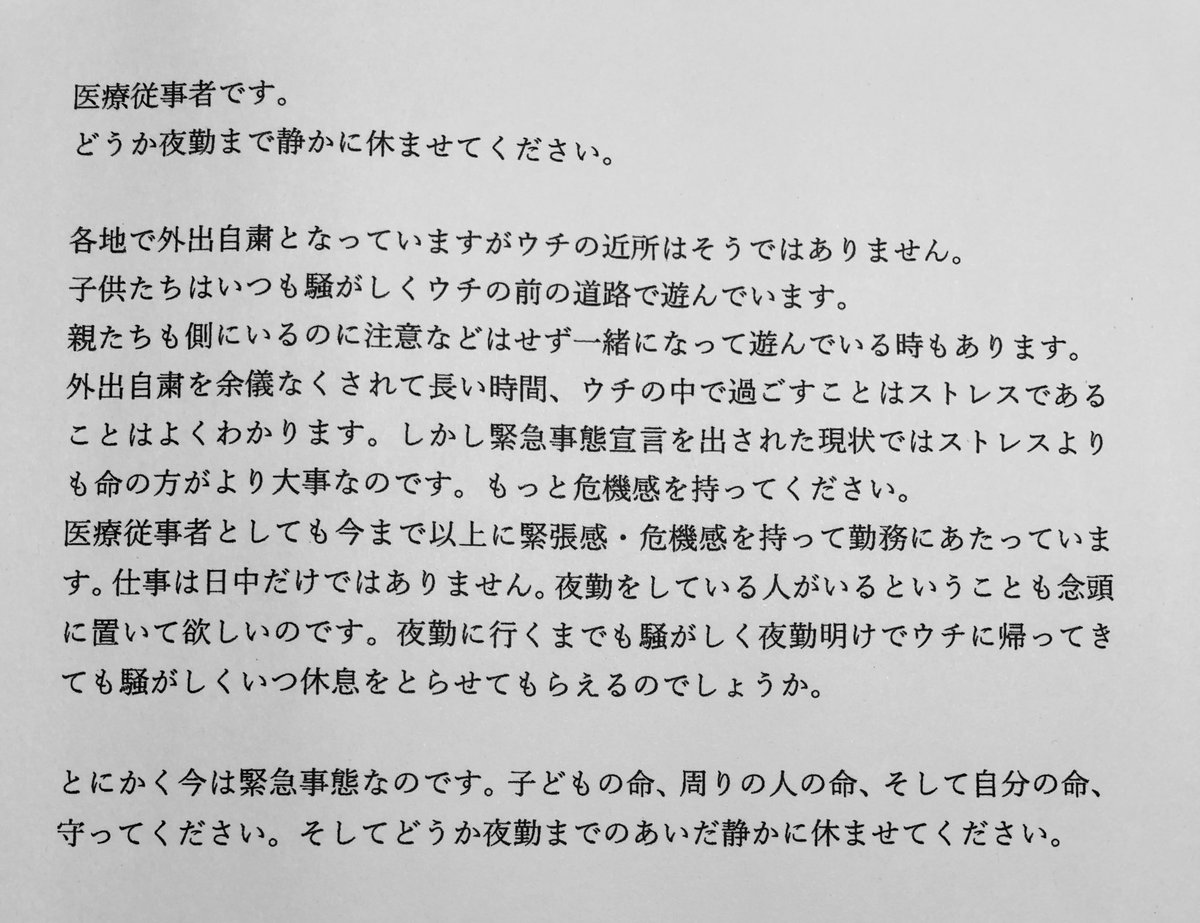 医療従事者です。
どうか夜勤まで静かに休ませてください。
各地で外出自粛となっていますがウチの近所はそうではありません。
子供たちはいつも騒がしくウチの前の道路で遊んでいます。
親たちも側にいるのに注意などはせず一緒になって遊んでいる時もあります。
外出自粛を余儀なくされて長い時間、ウチの中で過ごすことはストレスである
ことはよくわかります。しかし緊急事態宣言を出された現状ではストレスより
も命の方がより大事なのです。もっと危機感を持ってください。
医療従事者としても今まで以上に緊張感・危機感を持って勤務にあたっていま
す。仕事は日中だけではありません。夜勤をしている人がいるということも念頭
に置いて欲しいのです。夜勤に行くまでも騒がしく夜勤明けでウチに帰ってき
ても騒がしくいつ休息をとらせてもらえるのでしょうか。
とにかく今は緊急事態なのです。子どもの命、周りの人の命、そして自分の命、
守ってください。そしてどうか夜勤までのあいだ静かに休ませてください。